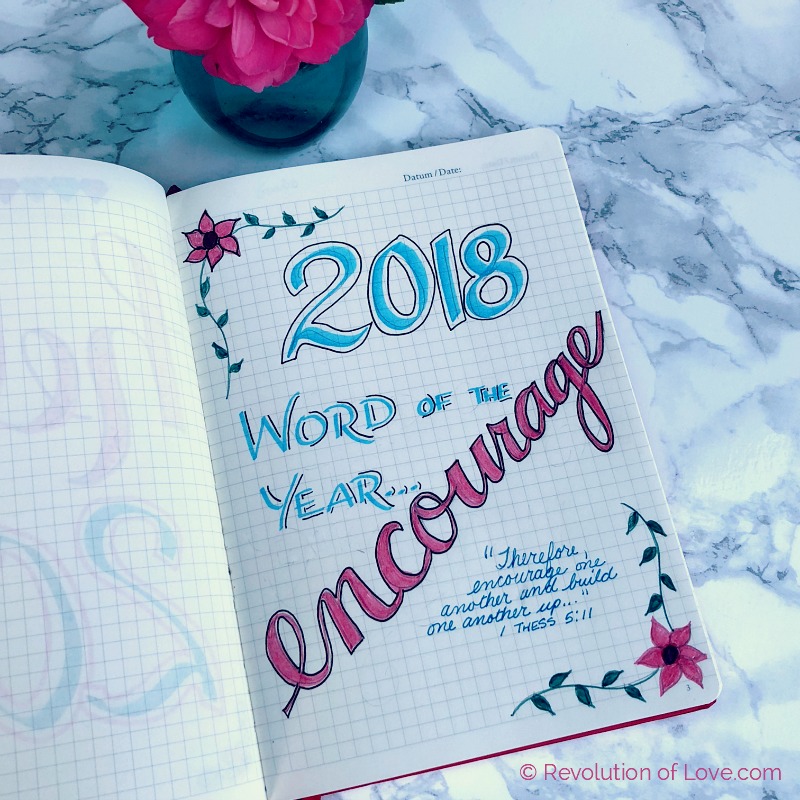 Datum / Date:
2018
WORD OF THE
YEAR...
encourage
"Therefore,
encourage one
another and build
one another up..."
1 THESS 5:11
3
© Revolution of Love.com